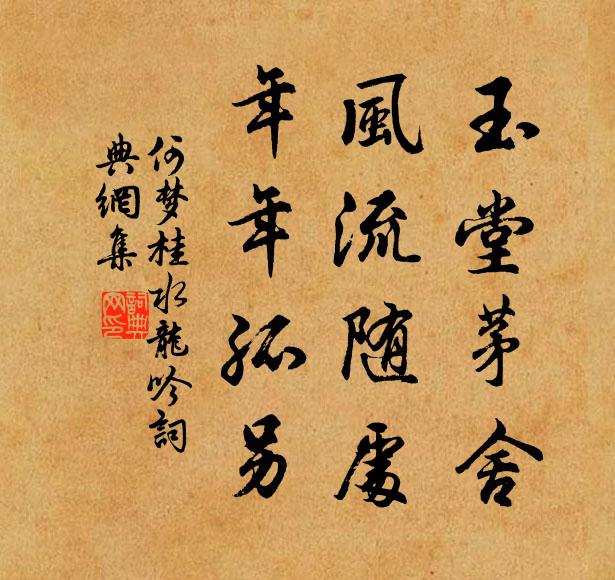 玉堂茅舍
風流随處
年年孤另
何梦桂水龍吟詞
典網集
詞典网印